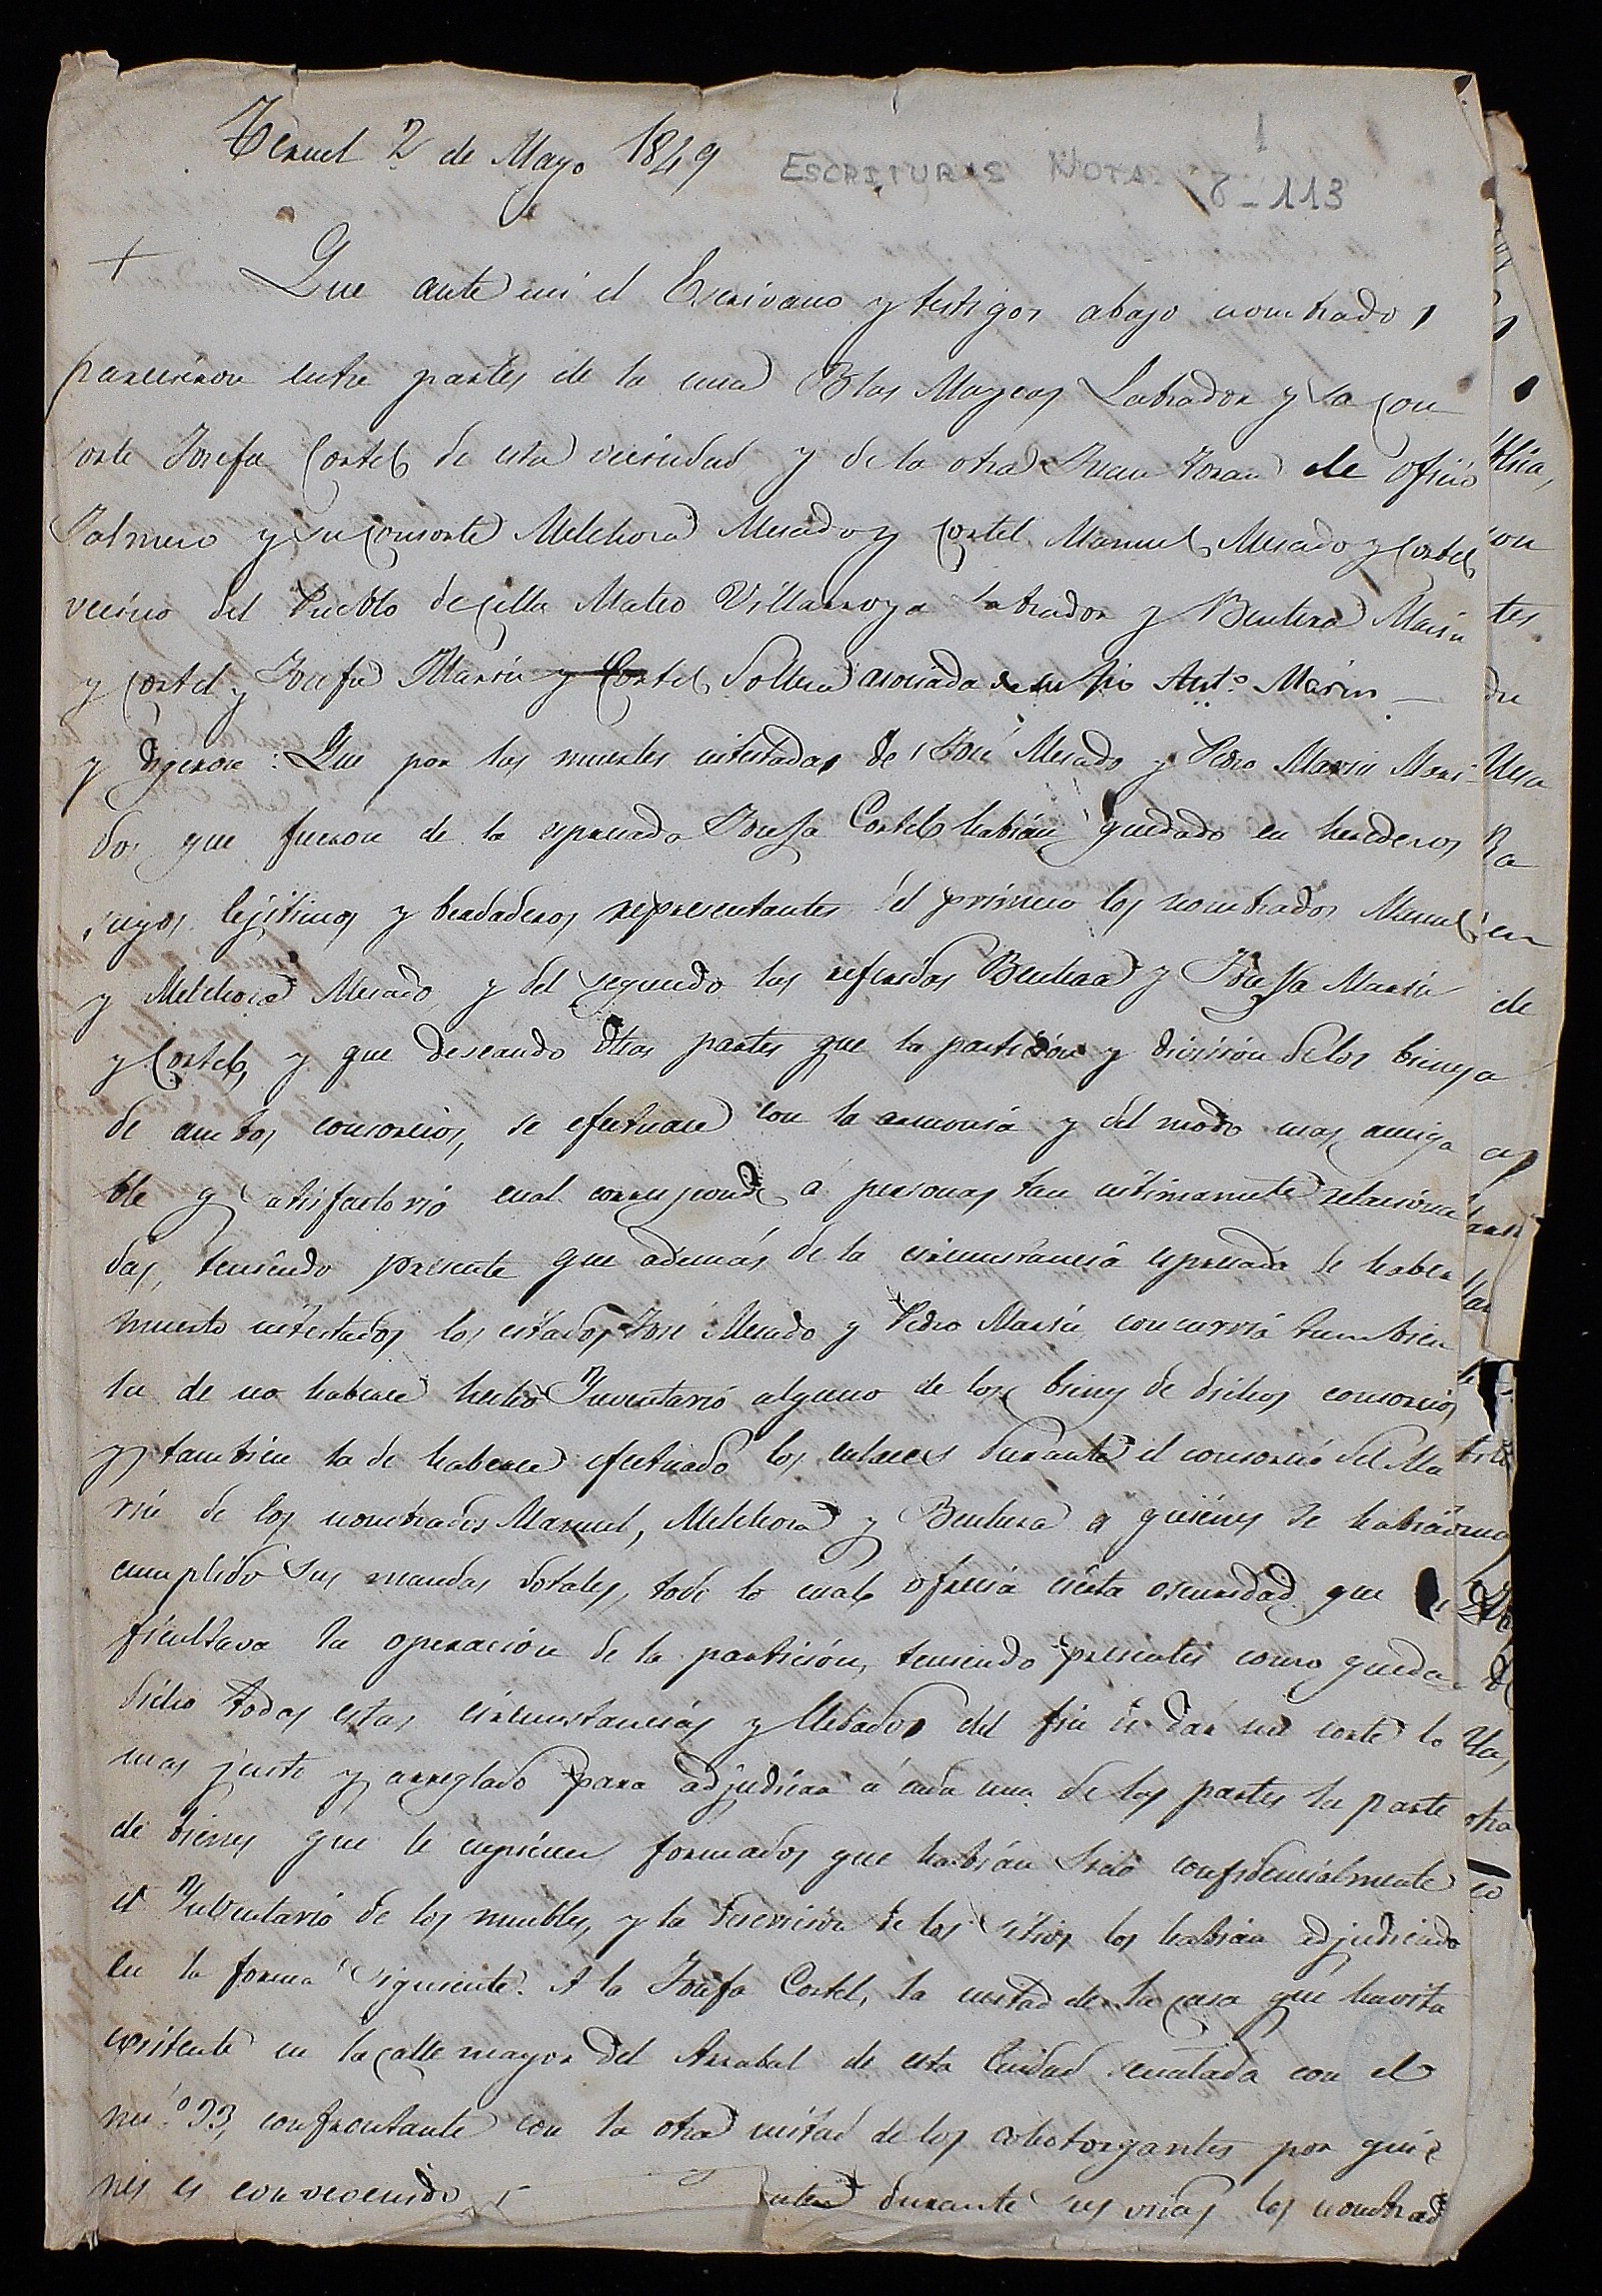 Teruel 2 de Mayo 1849
ESCRITURAS NOTA. 8-113
+
Que ante mi el Escrivano y testigos abajo nombrados
parecieron entre partes de la una Blas Mayeas Labrador y sa con
sorte Josefa Cortel de esta vecindad y de la otra Juan de oficio
y su consorte Melchora Mercado y Cortel Manuel Mercado y Cortel
vecino del Pueblo de Cella Mateo Villarroya Labrador y Bentura Marin
y Cortel y Josefa Marin y Cortel Soltera asociada de su tio Antº Marin
y digeron: Que por las muertes intestadas de José Mercado y Pedro Marin Mari-
dos que fueron de la espresada Josefa Cortel habian quedado en herederos
suyos lejitimos y berdaderos representantes del primero los nombrados Manuel
y Melchora Mercado, y del segundo las referidas Bentura y Josefa Marin
y Cortel, y que deseando dhas partes que la particion y division de los bienes
de ambos consorcios, se efectuase con la armonia y del modo mas amiga
ble y satisfactorio cual corresponde á personas tan intimamente relaciona
das, teniendo presente que además de la circunstancia espresada de haber
muerto intestados los citados José Mercado y Pedro Marin, concurria tambien
la de no haberse hecho Inventario alguno de los bienes de dichos consorcios
y tambien la de haberse efectuado los enlaces durante el consorcio del Ma
rin de los nombrados Manuel, Melchora y Bentura a quienes se habian
cumplido sus mandas dotales, todo lo cual ofrecia cierta oscuridad que di
ficultava la operacion de la particion, teniendo presentes como queda
dicho todas estas circunstancias y llebados del fin de dar un corte lo
mas justo y arreglado para adjudicar á cada una de las partes la parte
de bienes que le cupiesen formados que habian sido confidencialmente
el Inventario de los muebles, y la descricion de los sitios los habian adjudicado
en la forma siguiente. A la Josefa Cortel, la mitad de la casa que havita
existente en la calle mayor del Arrabal de esta Ciudad senalada con el
nu.º 33, confrontante con la otra mitad de los cohotorgantes por quie
nes es convevenido durante sus vidas los nombrad